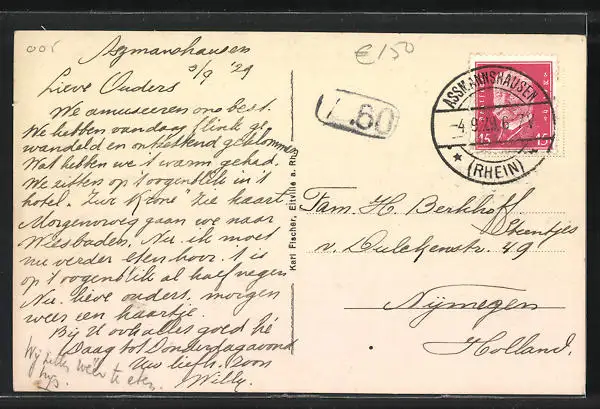 005
€150
Assmannshausen
3/9 '29
Lieve Ouders
We amuseeren ons best.
We hebben vandaag flink ge
wandeld en ontzettend geklommen
Wat hebben we 't warm gehad.
We zitten op 't oogenblik in 't
hotel. Zie zie kaart
Morgenvroeg gaan we naar
Wiesbaden. Nu ik moet
nu verder eten hoor. 't is
op 't oogenblik al half negen
Nu lieve ouders, morgen
weer een kaartje.
Bij U ook alles goed hè
Daag tot Donderdagavond
Uw liefh. zoon
Willy.
Wij zitten weer te eten.
Karl Fischer, Eltville a. Rh.
1.60
ASSMANNSHAUSEN
-4.9.29
(RHEIN)
15 15
Fam. H. Berkhoff
Steentjes
v. Dulckenstr. 49
Nijmegen
Holland.